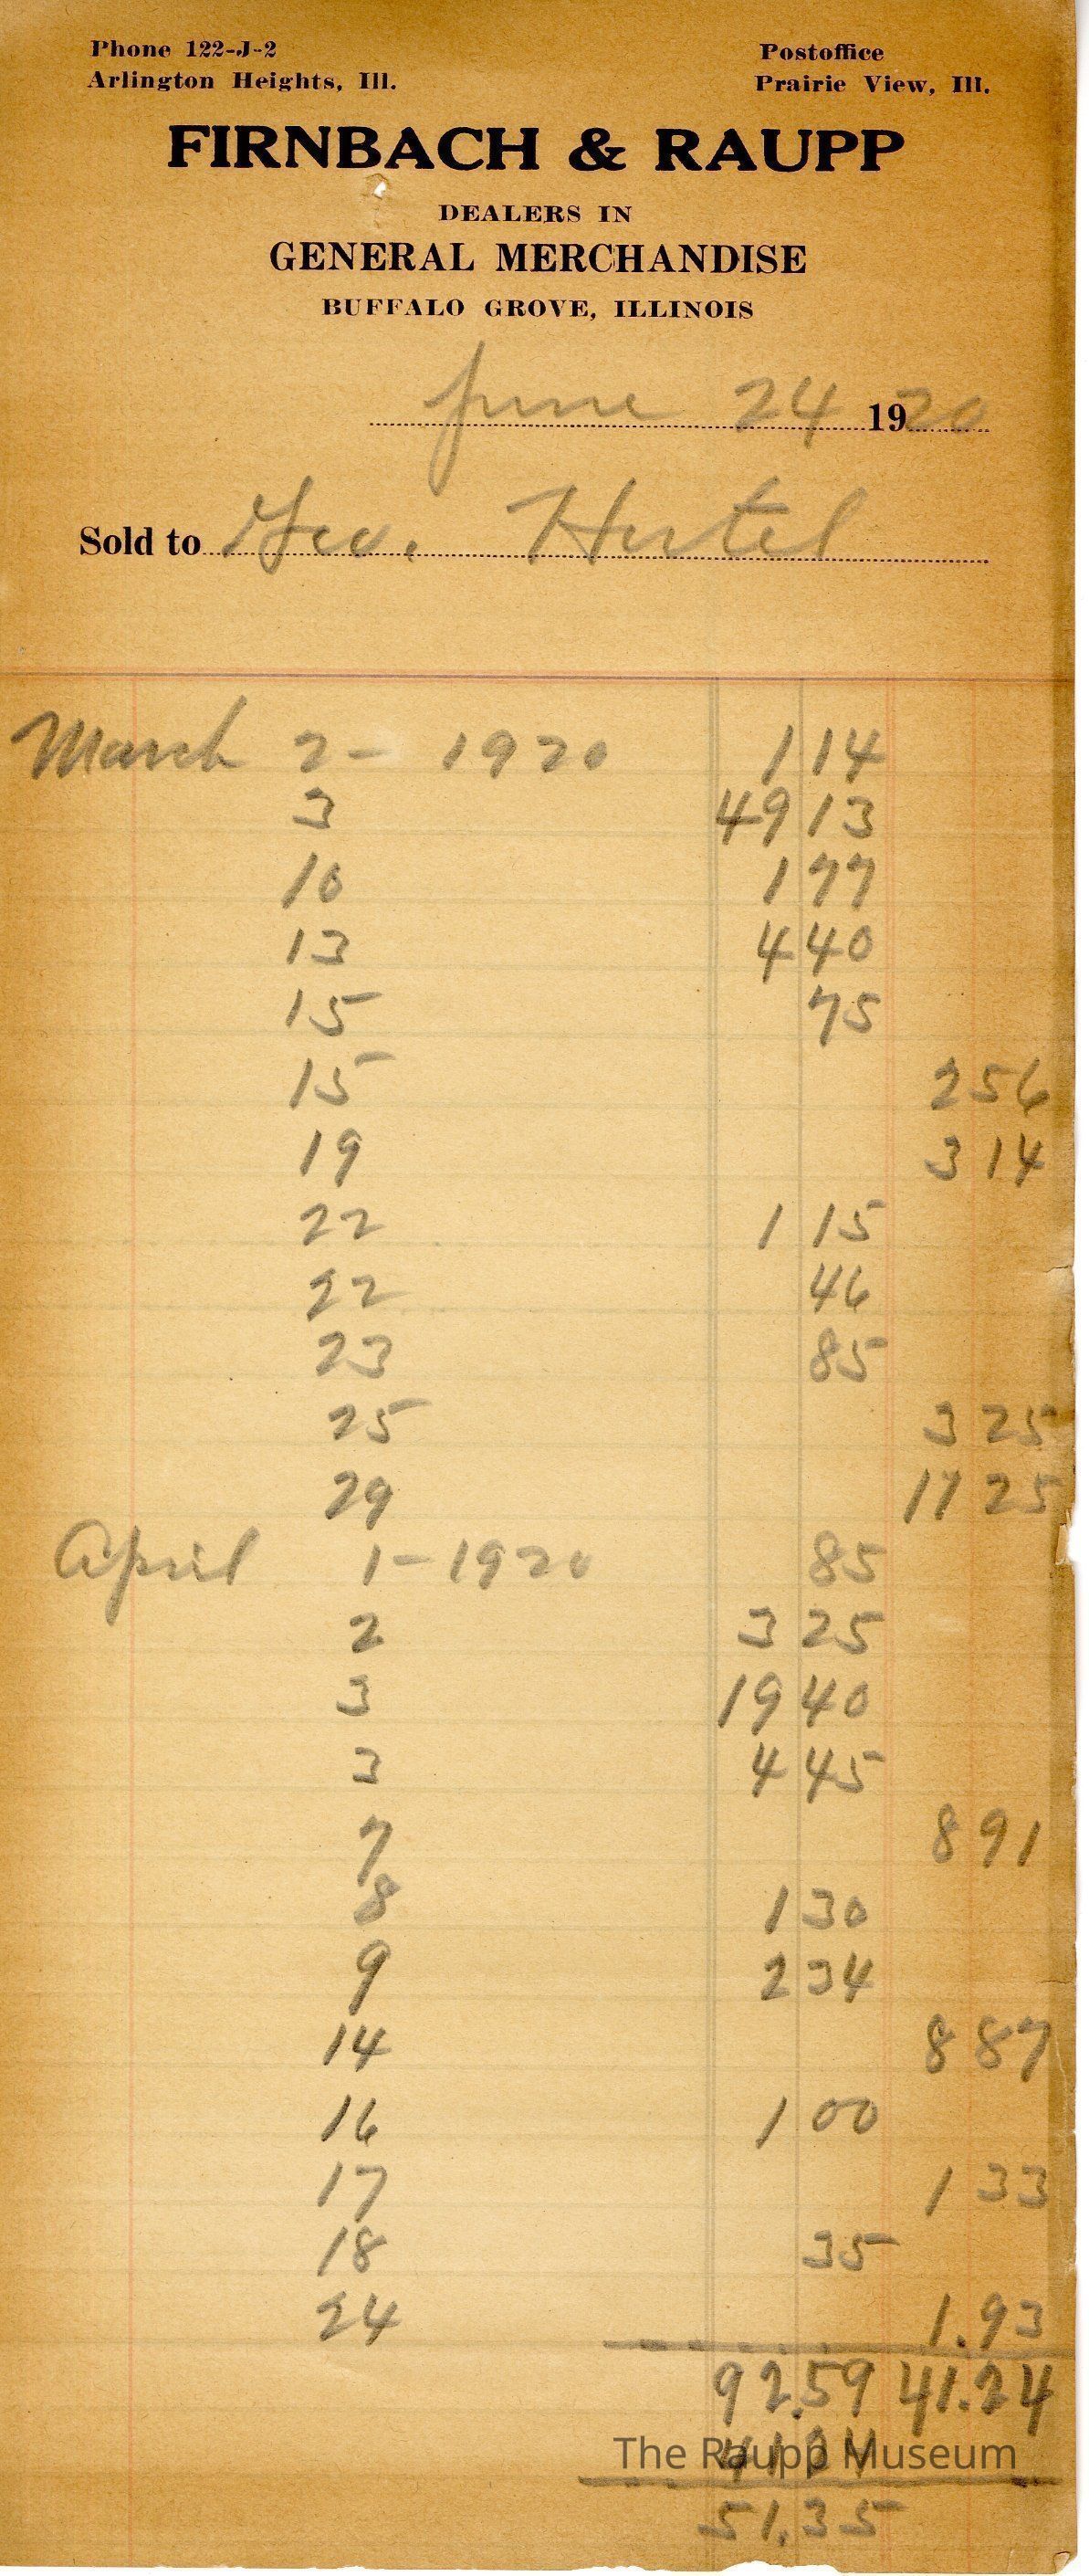 Phone 122-J-2 Postoffice
Arlington Heights, Ill. Prairie View, Ill.
FIRNBACH & RAUPP
DEALERS IN
GENERAL MERCHANDISE
BUFFALO GROVE, ILLINOIS
June 24 1920
Sold to Geo. Hertel
March 2 - 1920 1 14
3 49 13
10 1 77
13 4 40
15 75
15 2 56
19 3 14
22 1 15
22 46
23 85
25 3 25
29 11 25
April 1 - 1920 85
2 3 25
3 19 40
3 4 45
7 8 91
8 1 30
9 2 34
14 8 87
16 1 00
17 1 33
18 35
24 1.93
92.59 41.24
41 24
The Raupp Museum
51.35